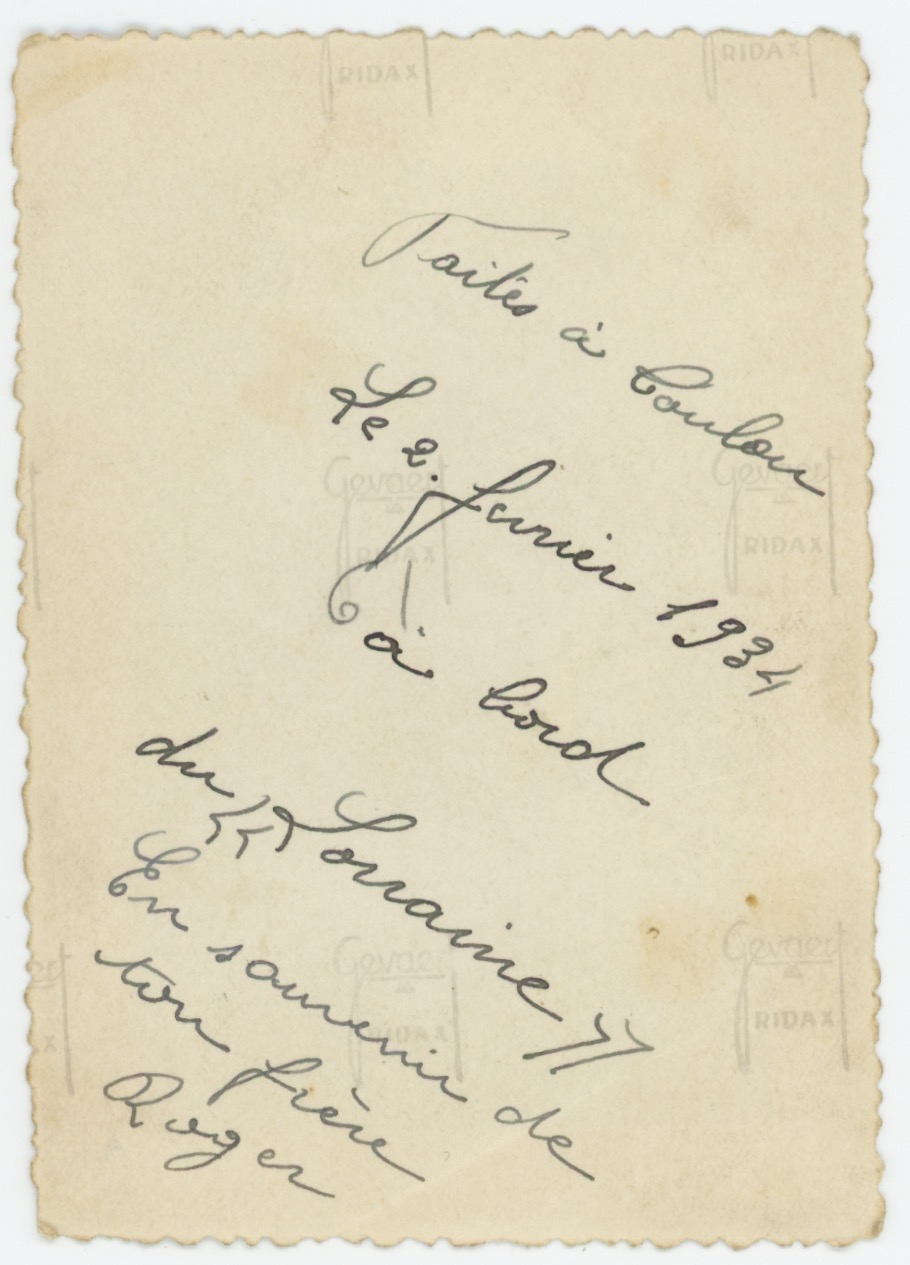 RIDAX
RIDAX
Faites à Toulon
Le 2. fevrier 1934
Gevaert
RIDAX
Gevaert
RIDAX
à bord
du << Lorraine >>
En souvenir de
ton frère
Roger
Gevaert
RIDAX
Gevaert
RIDAX